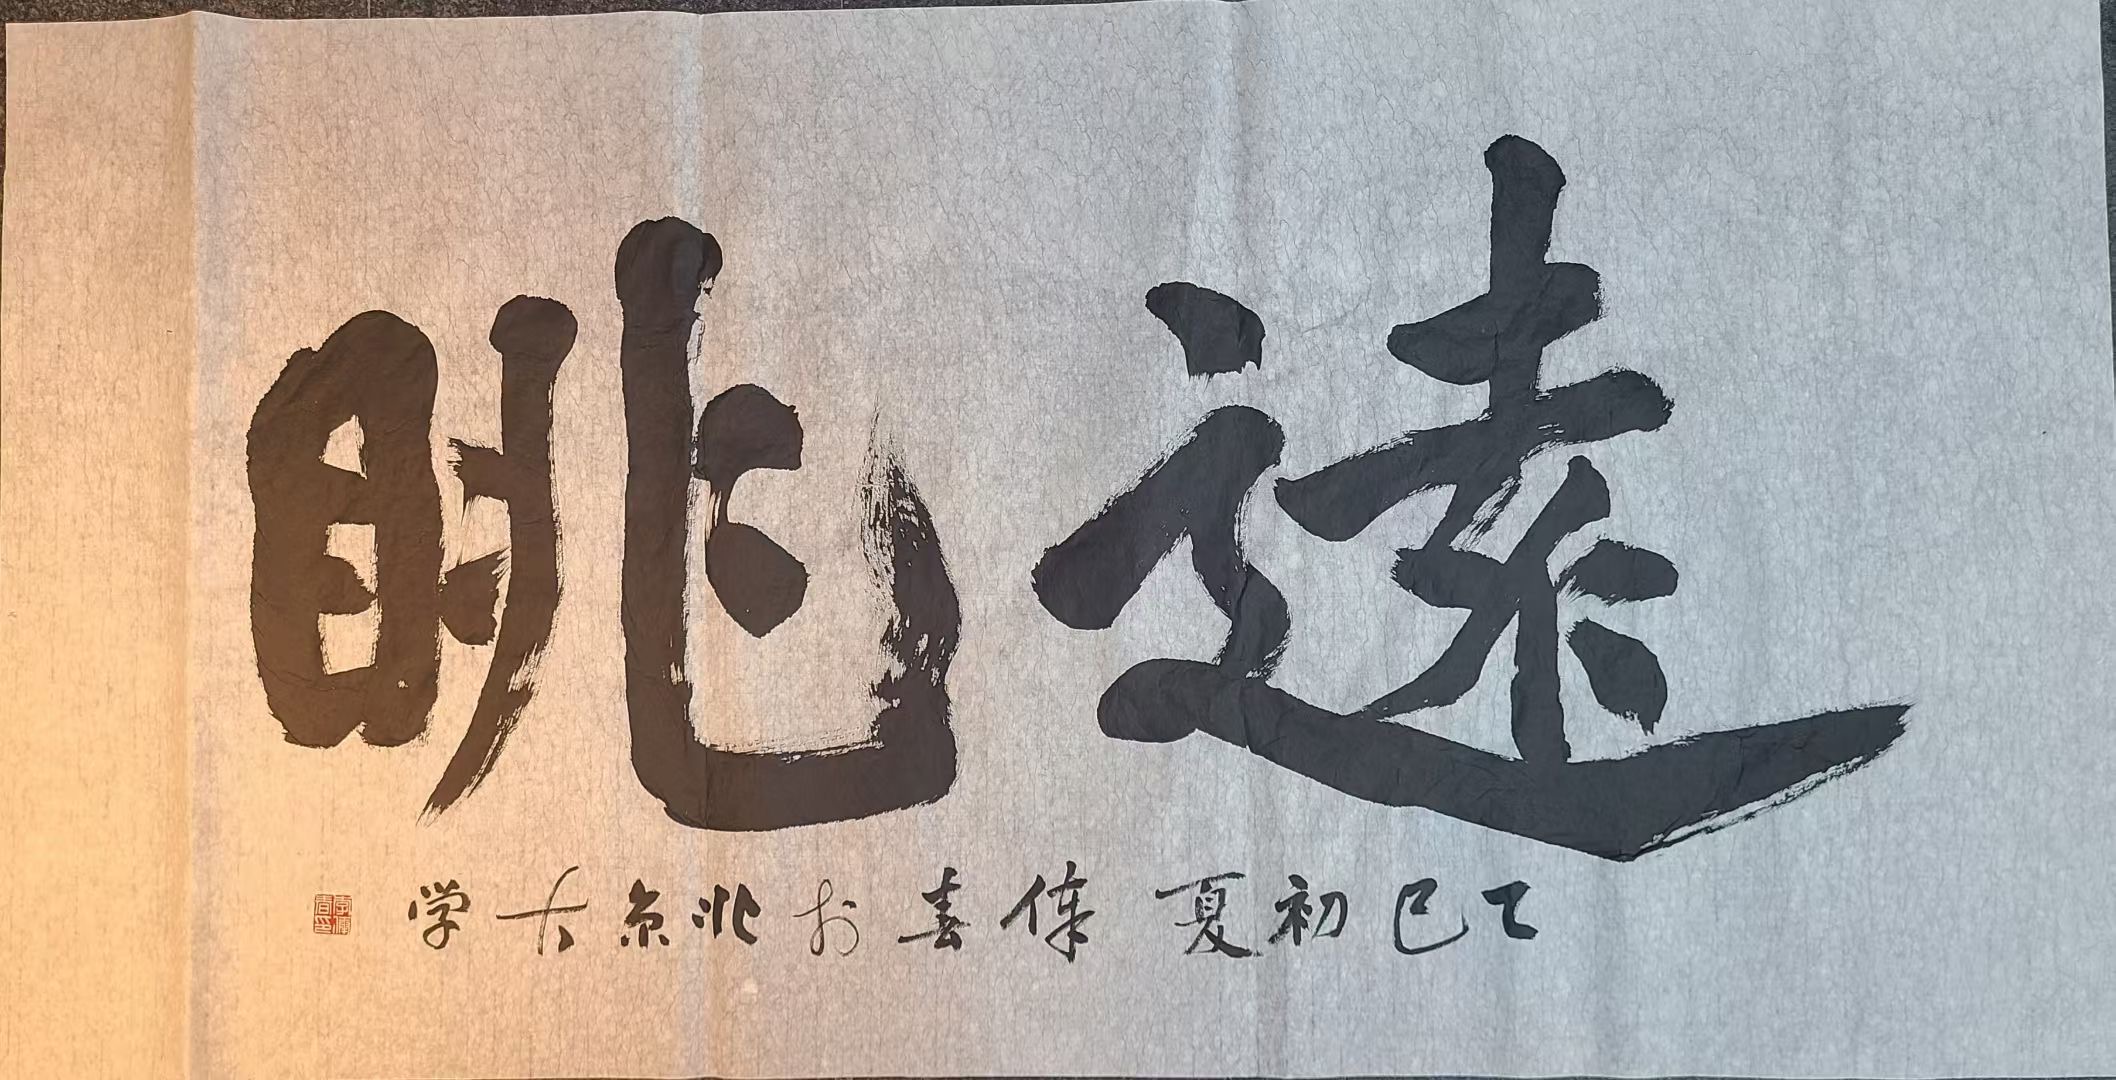 遠眺
乙巳初夏偉春於北京大学